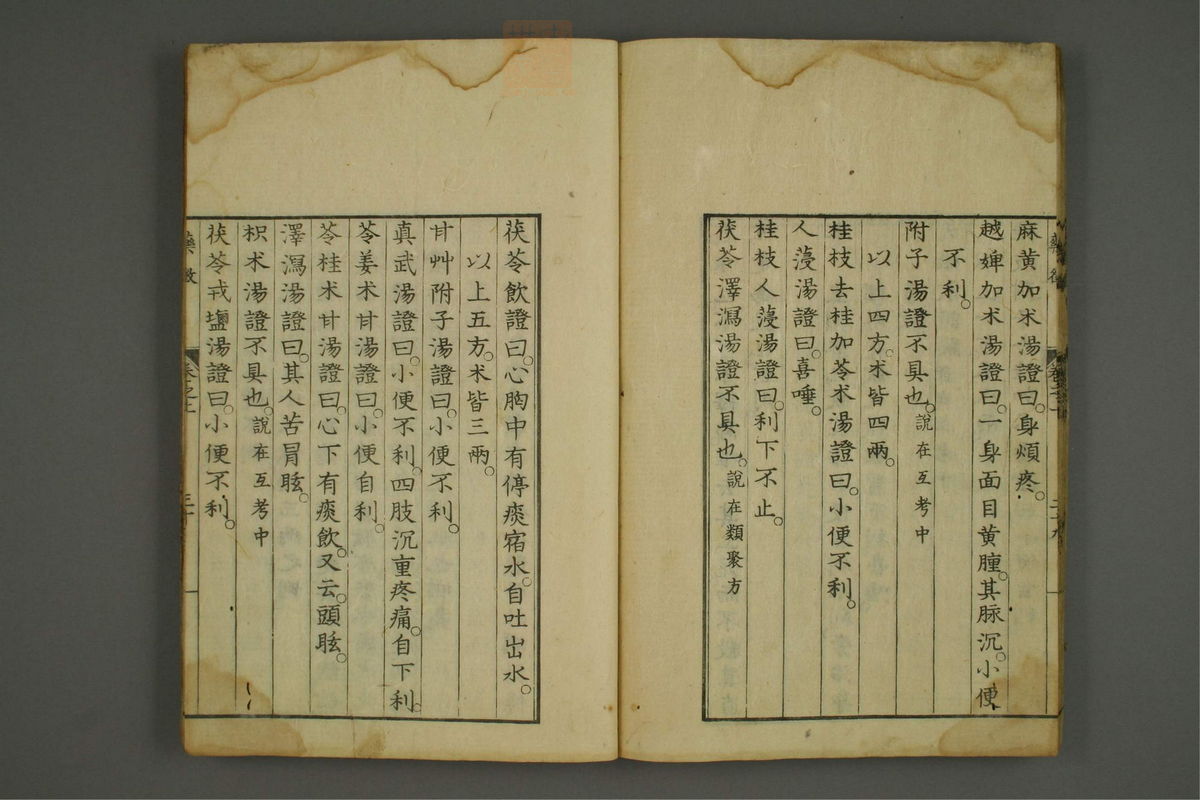 麻黄加朮湯證曰。身煩疼。
越婢加朮湯證曰。一身面目黄腫。其脉沉。小便
不利。
附子湯證不具也。說在互考中
以上四方。朮皆四兩。
桂枝去桂加苓朮湯證曰。小便不利。
人薓湯證曰。喜唾。
桂枝人薓湯證曰。利下不止。
茯苓澤瀉湯證不具也。說在類聚方
茯苓飲證曰。心胸中有停痰宿水。自吐出水。
以上五方。朮皆三兩。
甘艸附子湯證曰。小便不利。
真武湯證曰。小便不利。四肢沉重疼痛。自下利。
苓姜朮甘湯證曰。小便自利。
苓桂朮甘湯證曰。心下有痰飲。又云。頭眩。
澤瀉湯證曰。其人苦冒眩。
枳朮湯證不具也。說在互考中
茯苓戎鹽湯證曰。小便不利。
藥徴
卷之上